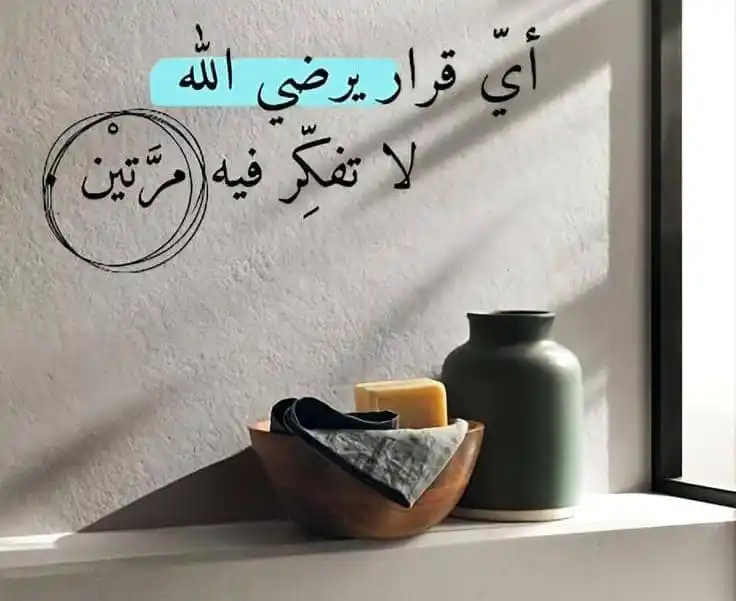 أيّ قرار يرضي الله
لا تفكِّر فيه مرَّتيْن